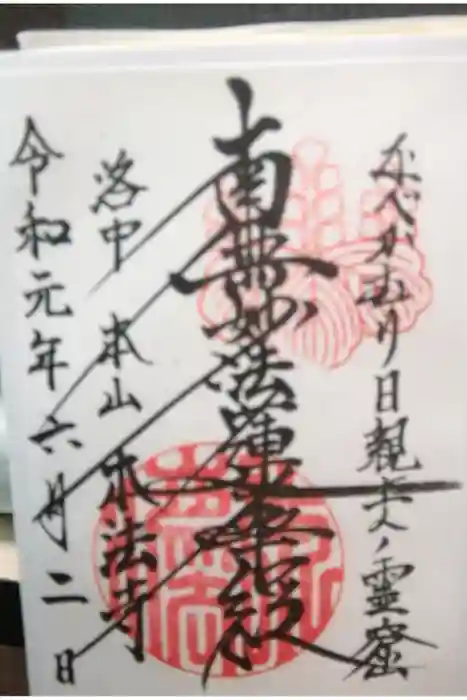 なべかむり日親上人ノ霊窟
南無妙法蓮華経
洛中 本山 本法寺
令和元年六月二日